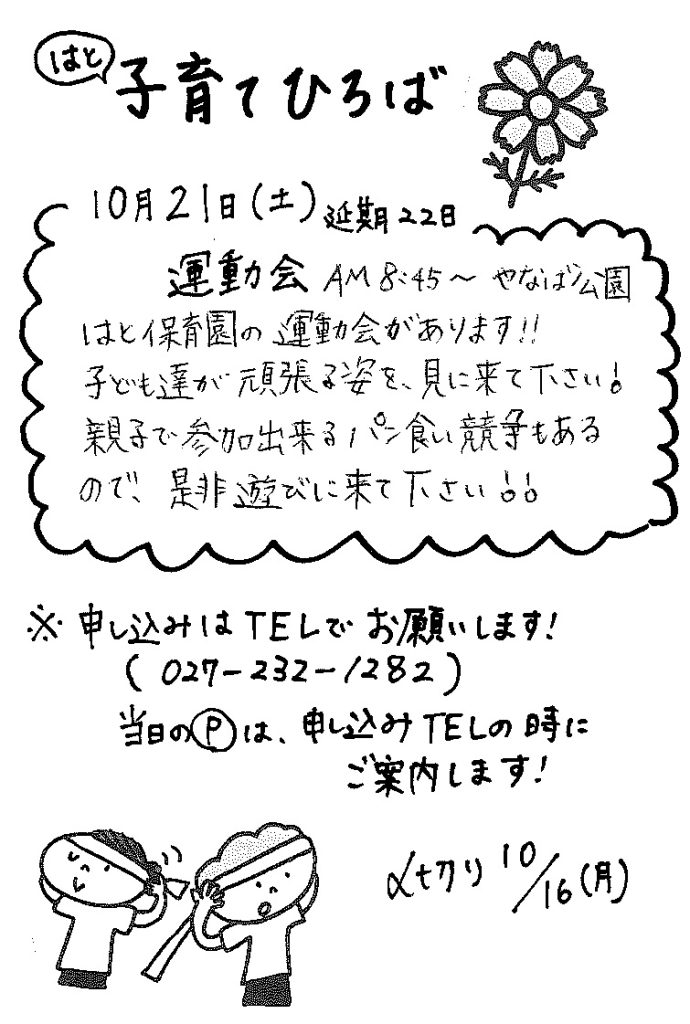 はと
子育てひろば
10月21日(土) 延期22日
運動会 AM 8:45～ やなば公園
はと保育園の運動会があります!!
子ども達が頑張る姿を、見に来て下さい!
親子で参加出来るパン食い競争もある
ので、是非遊びに来て下さい!!
※ 申し込みはTELでお願いします!
(027-232-1282)
当日のⓅは、申し込みTELの時に
ご案内します!
〆切り 10/16(月)